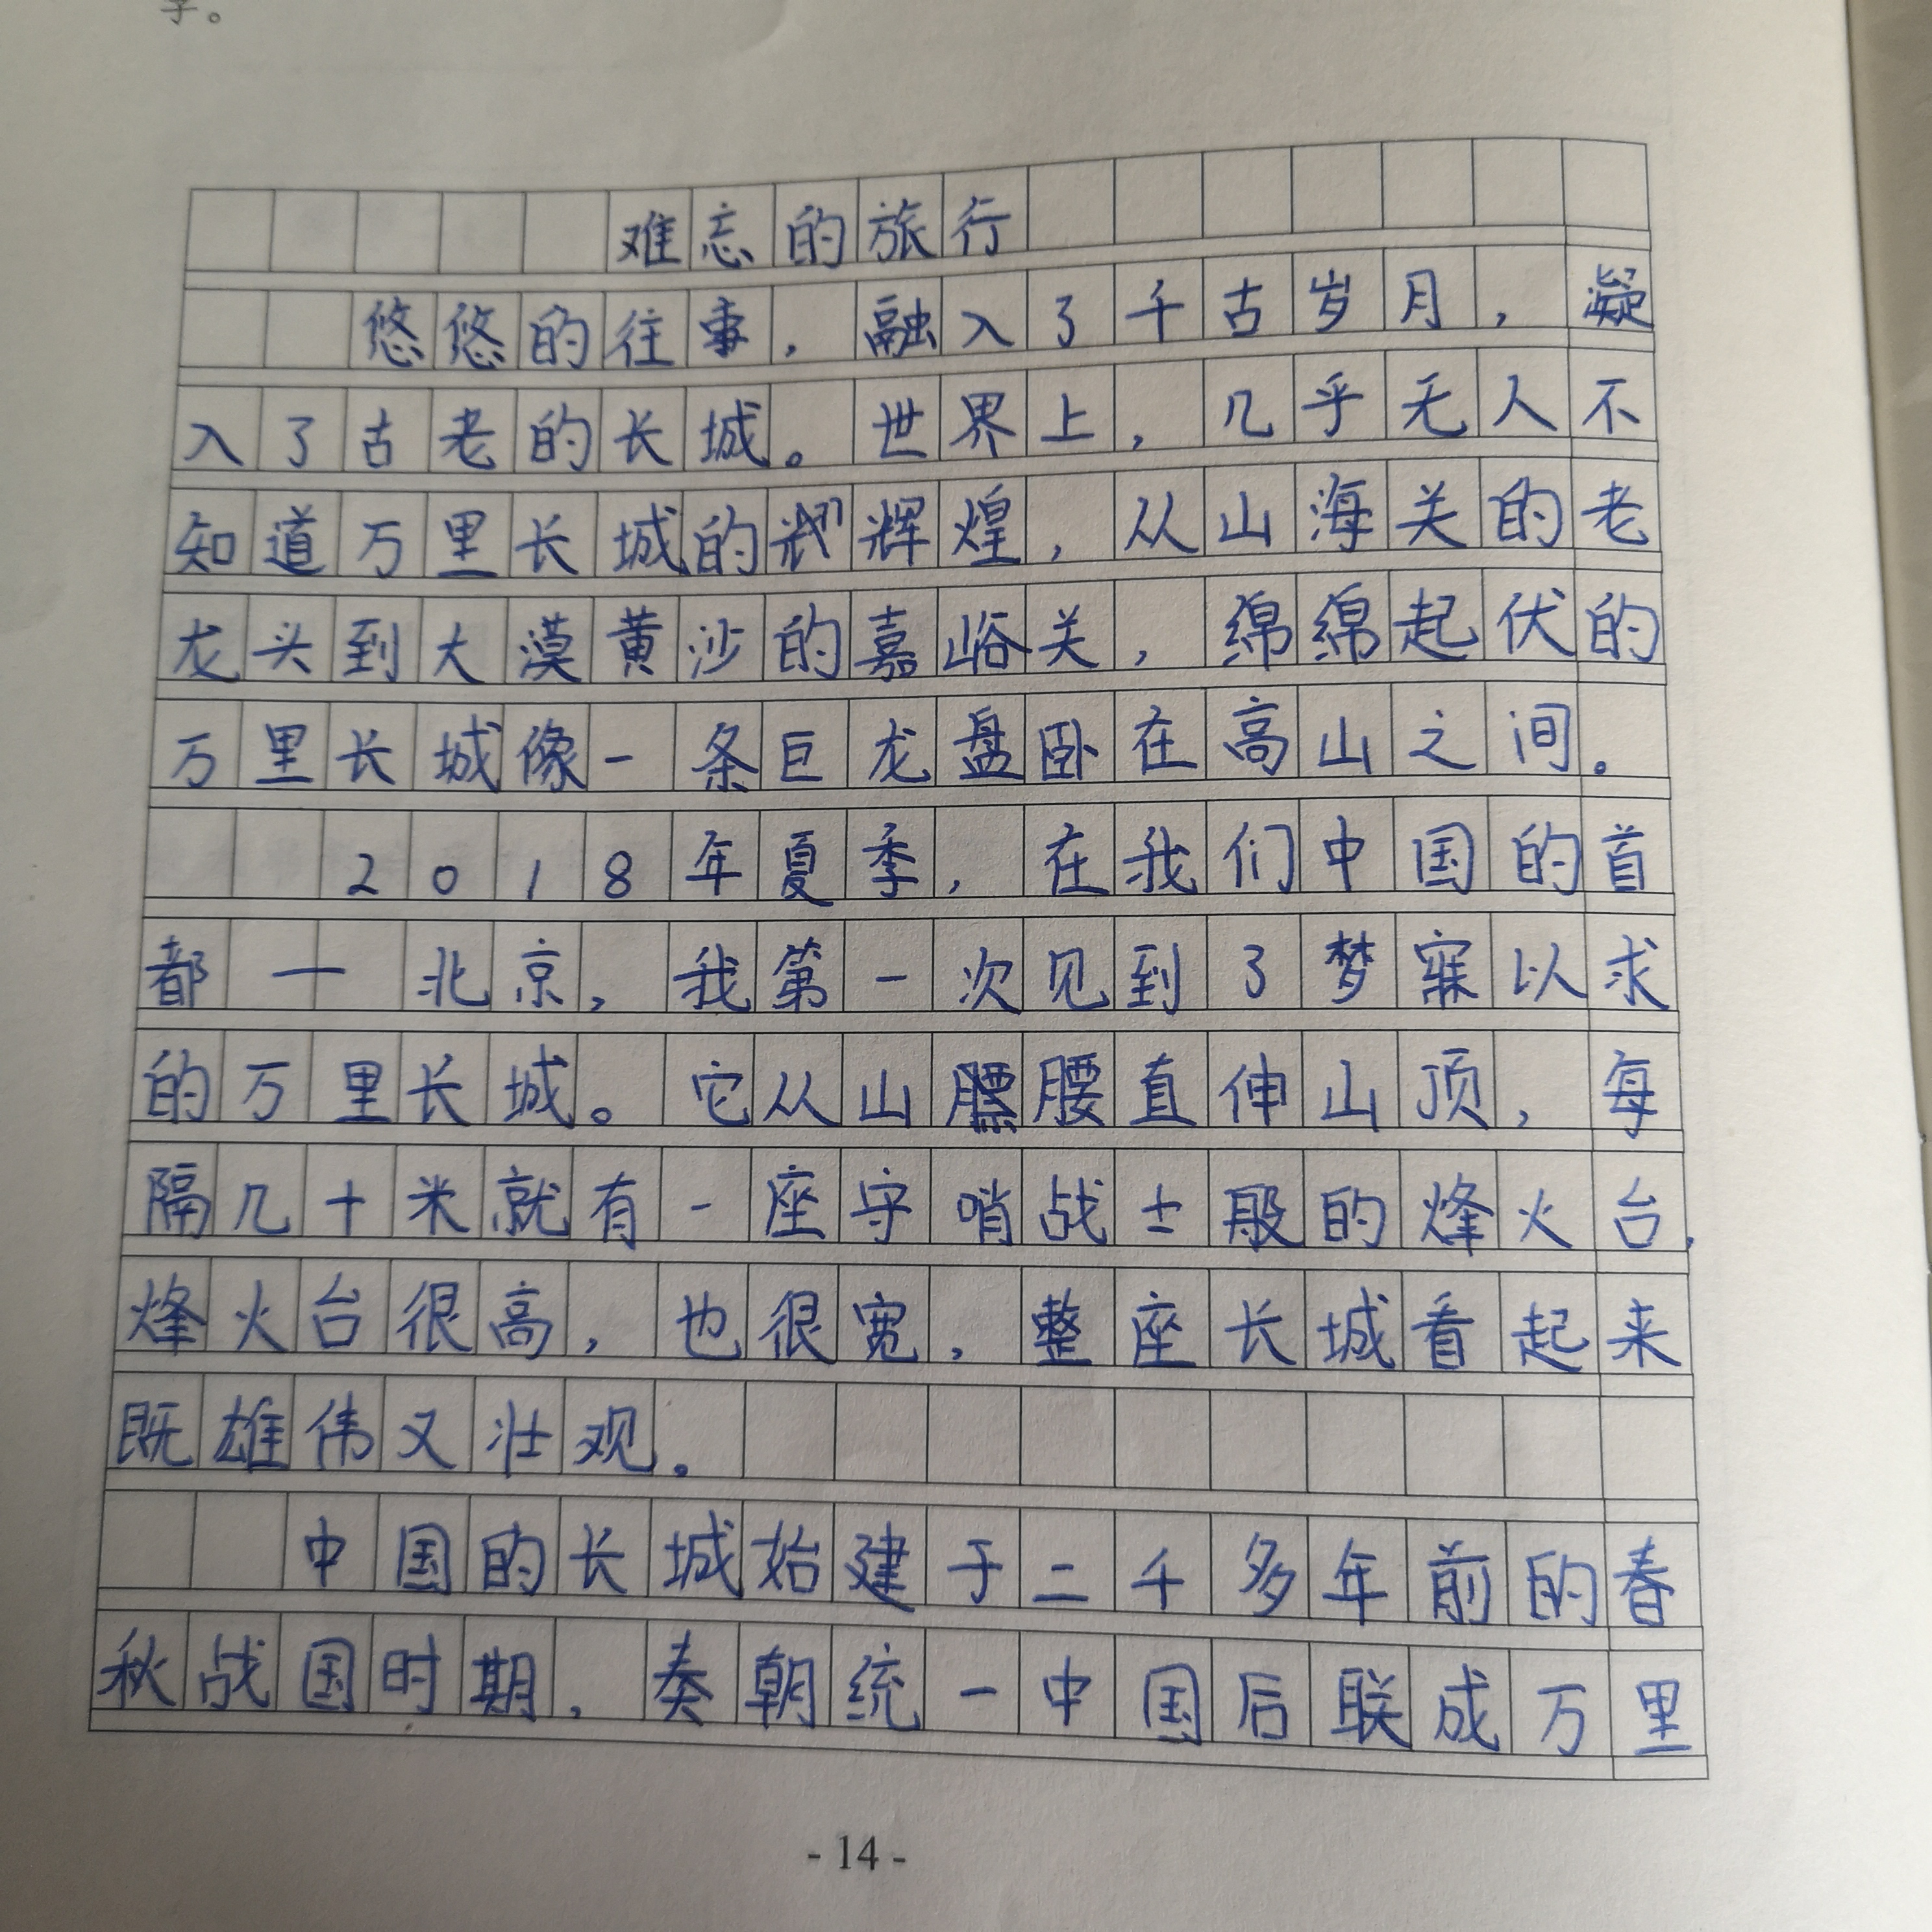 字。
难忘的旅行
悠悠的往事，融入了千古岁月，凝
入了古老的长城。世界上，几乎无人不
知道万里长城的辉煌，从山海关的老
龙头到大漠黄沙的嘉峪关，绵绵起伏的
万里长城像一条巨龙盘卧在高山之间。
2018年夏季，在我们中国的首
都—北京，我第一次见到了梦寐以求
的万里长城。它从山腰直伸山顶，每
隔几十米就有一座守哨战士般的烽火台，
烽火台很高，也很宽，整座长城看起来
既雄伟又壮观。
中国的长城始建于二千多年前的春
秋战国时期，秦朝统一中国后联成万里
- 14 -